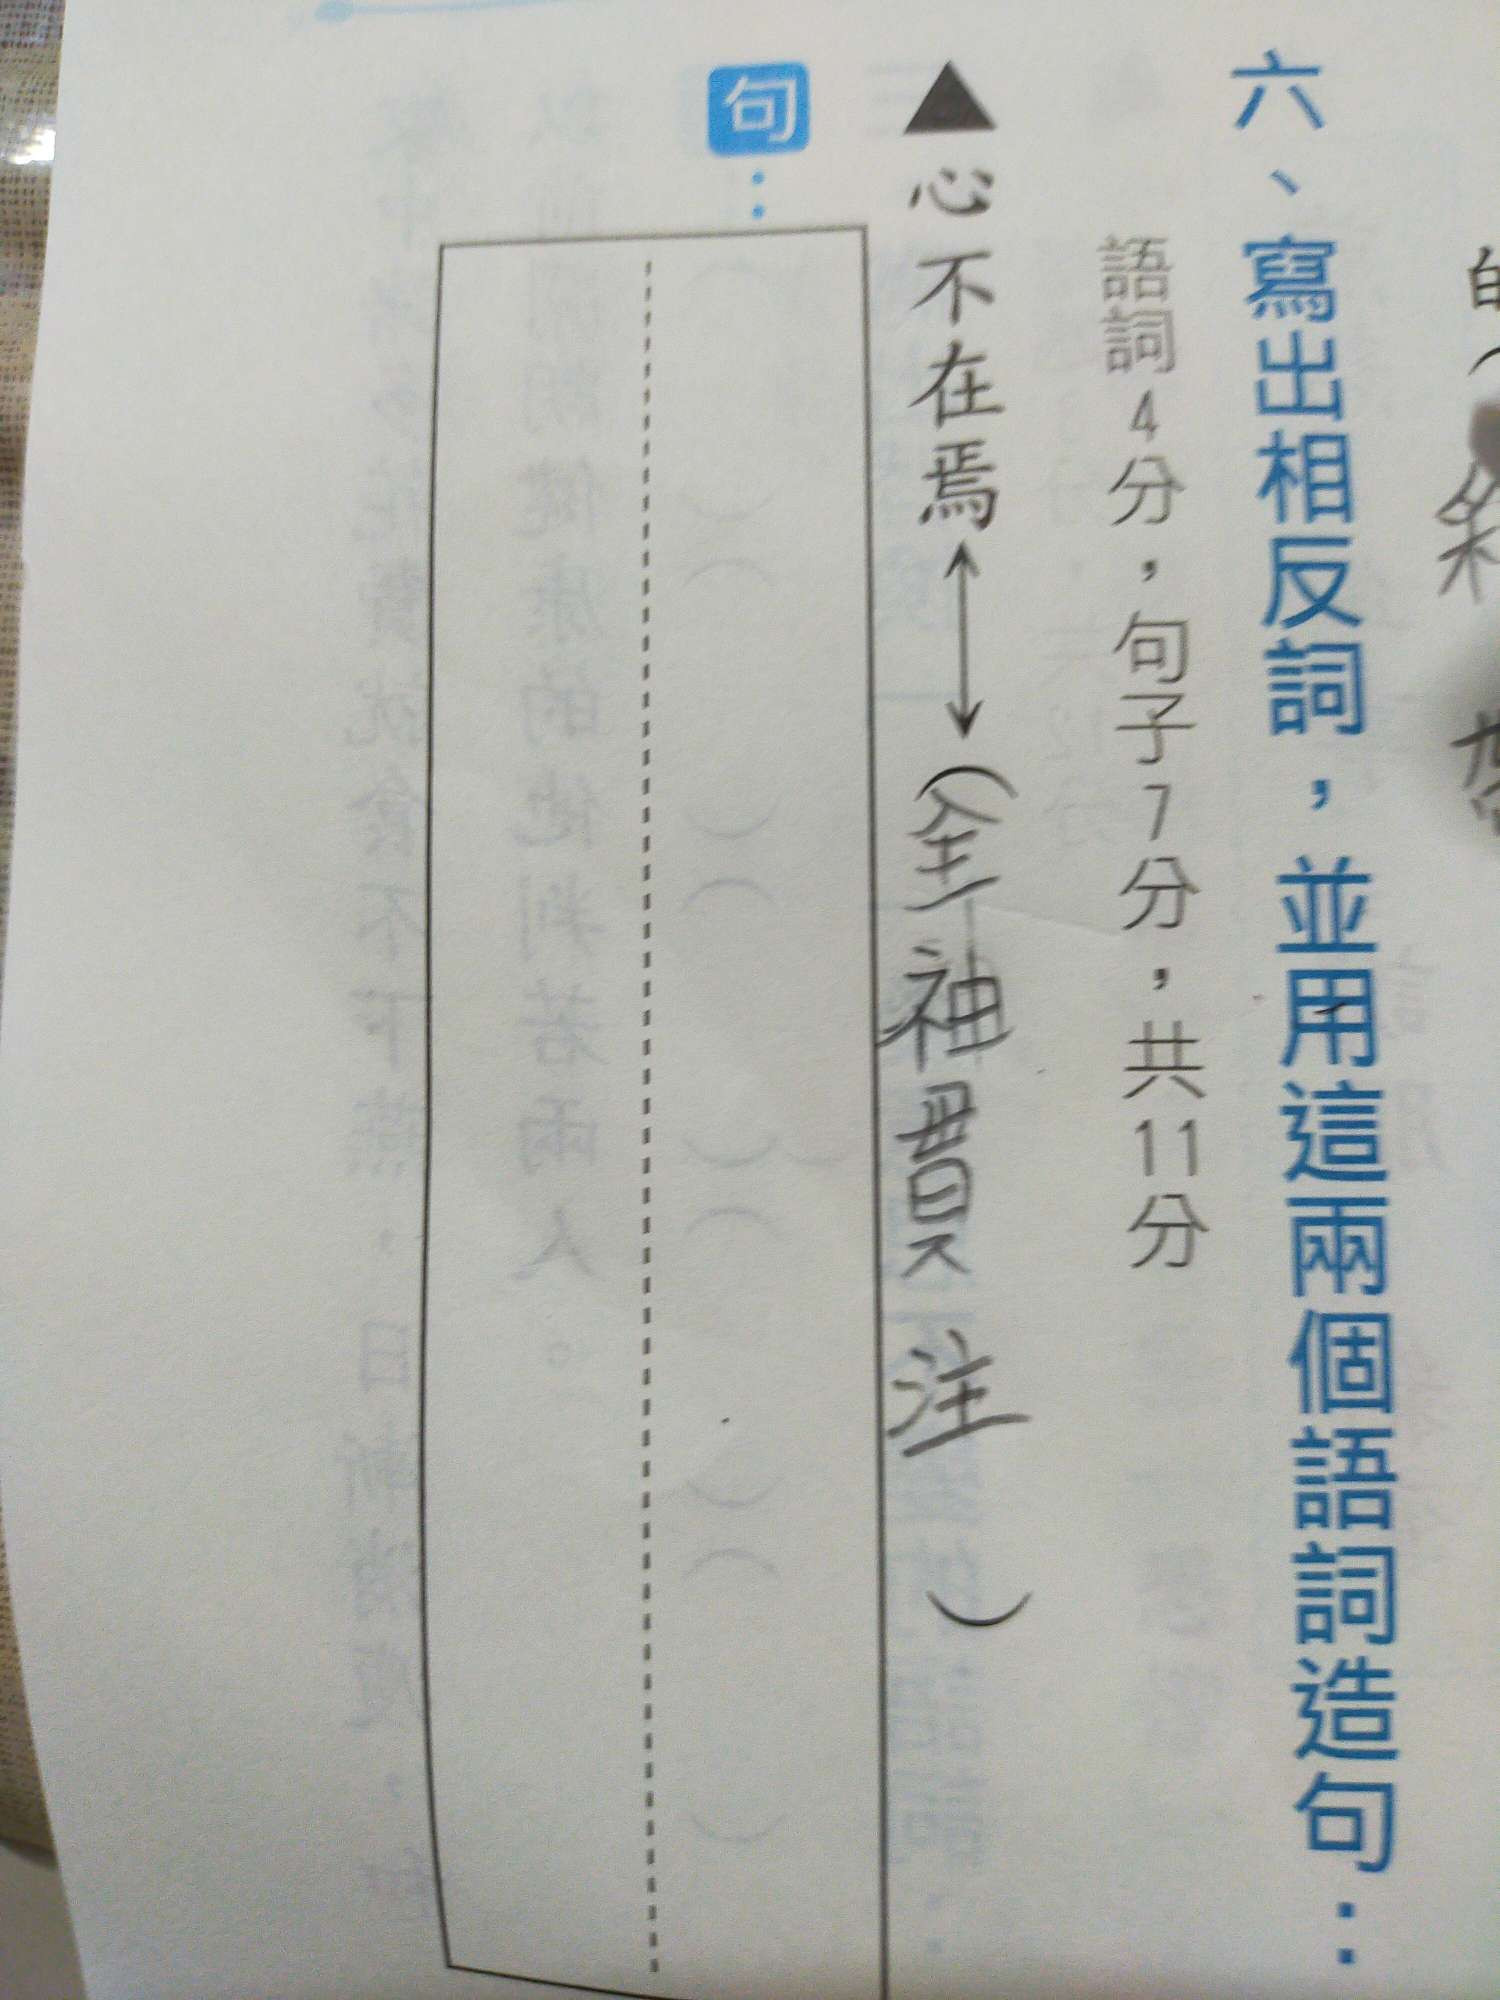 六、寫出相反詞，並用這兩個語詞造句：
語詞4分，句子7分，共11分
▲心不在焉↔(全神貫注)
句：